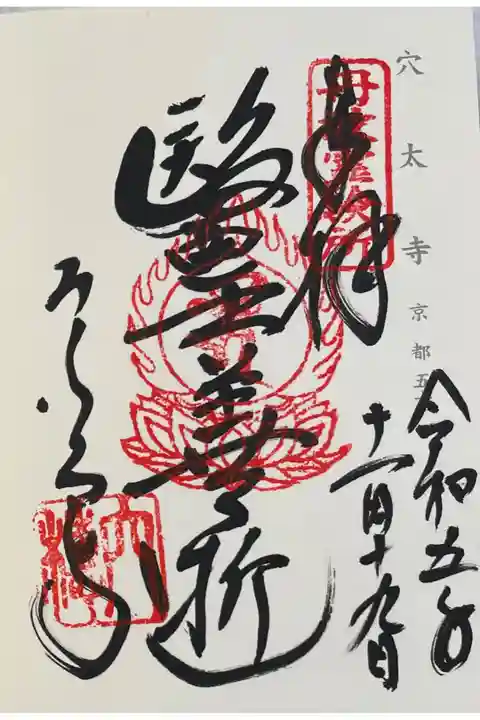 穴太寺 京都五
令和五年
十一月十九日
奉拝
醫王善逝